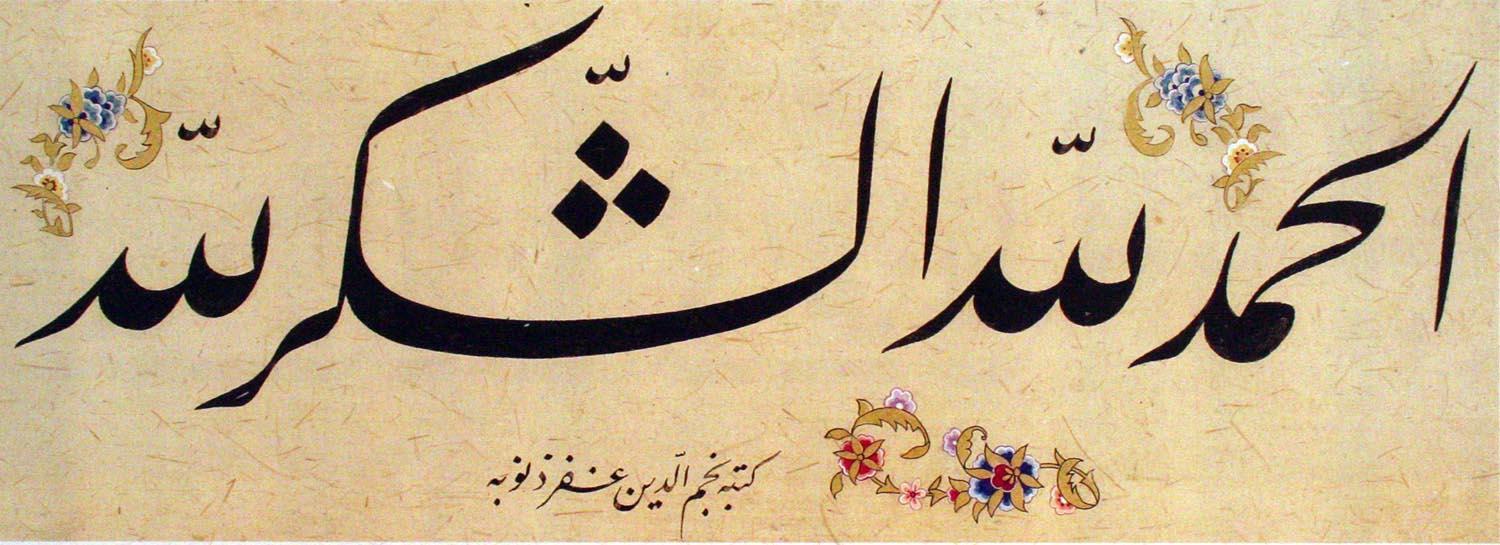 الحمد لله الشكر لله
كتبه نجم الدّين غفر ذنوبه